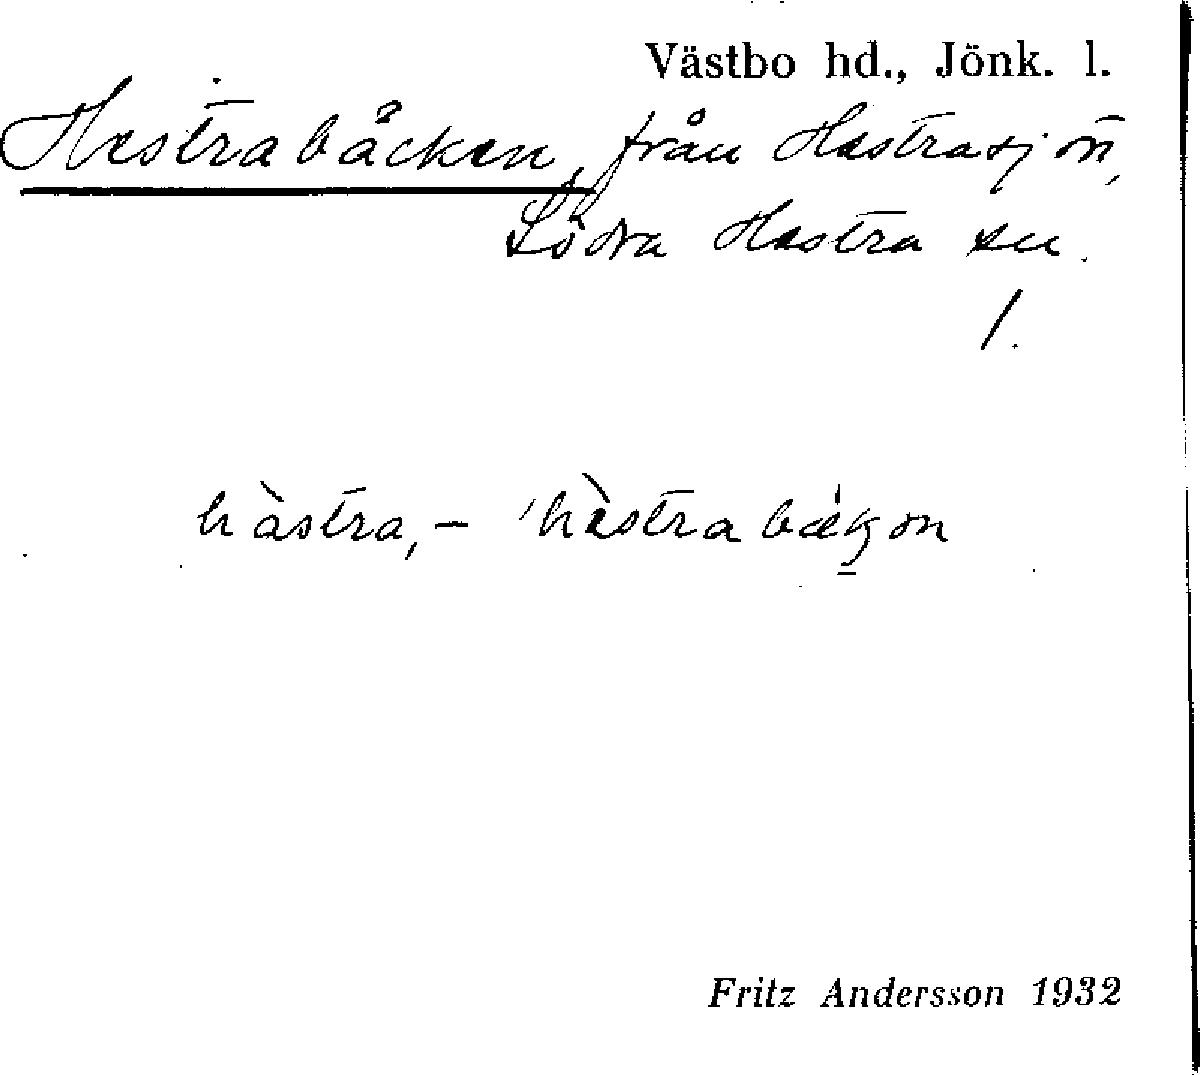 Västbo hd., Jönk. l.
Hestrabäcken, från Hestrasjön,
Södra Hestra sn.
1.
hàstra, – 'hèstrabækon
Fritz Andersson 1932